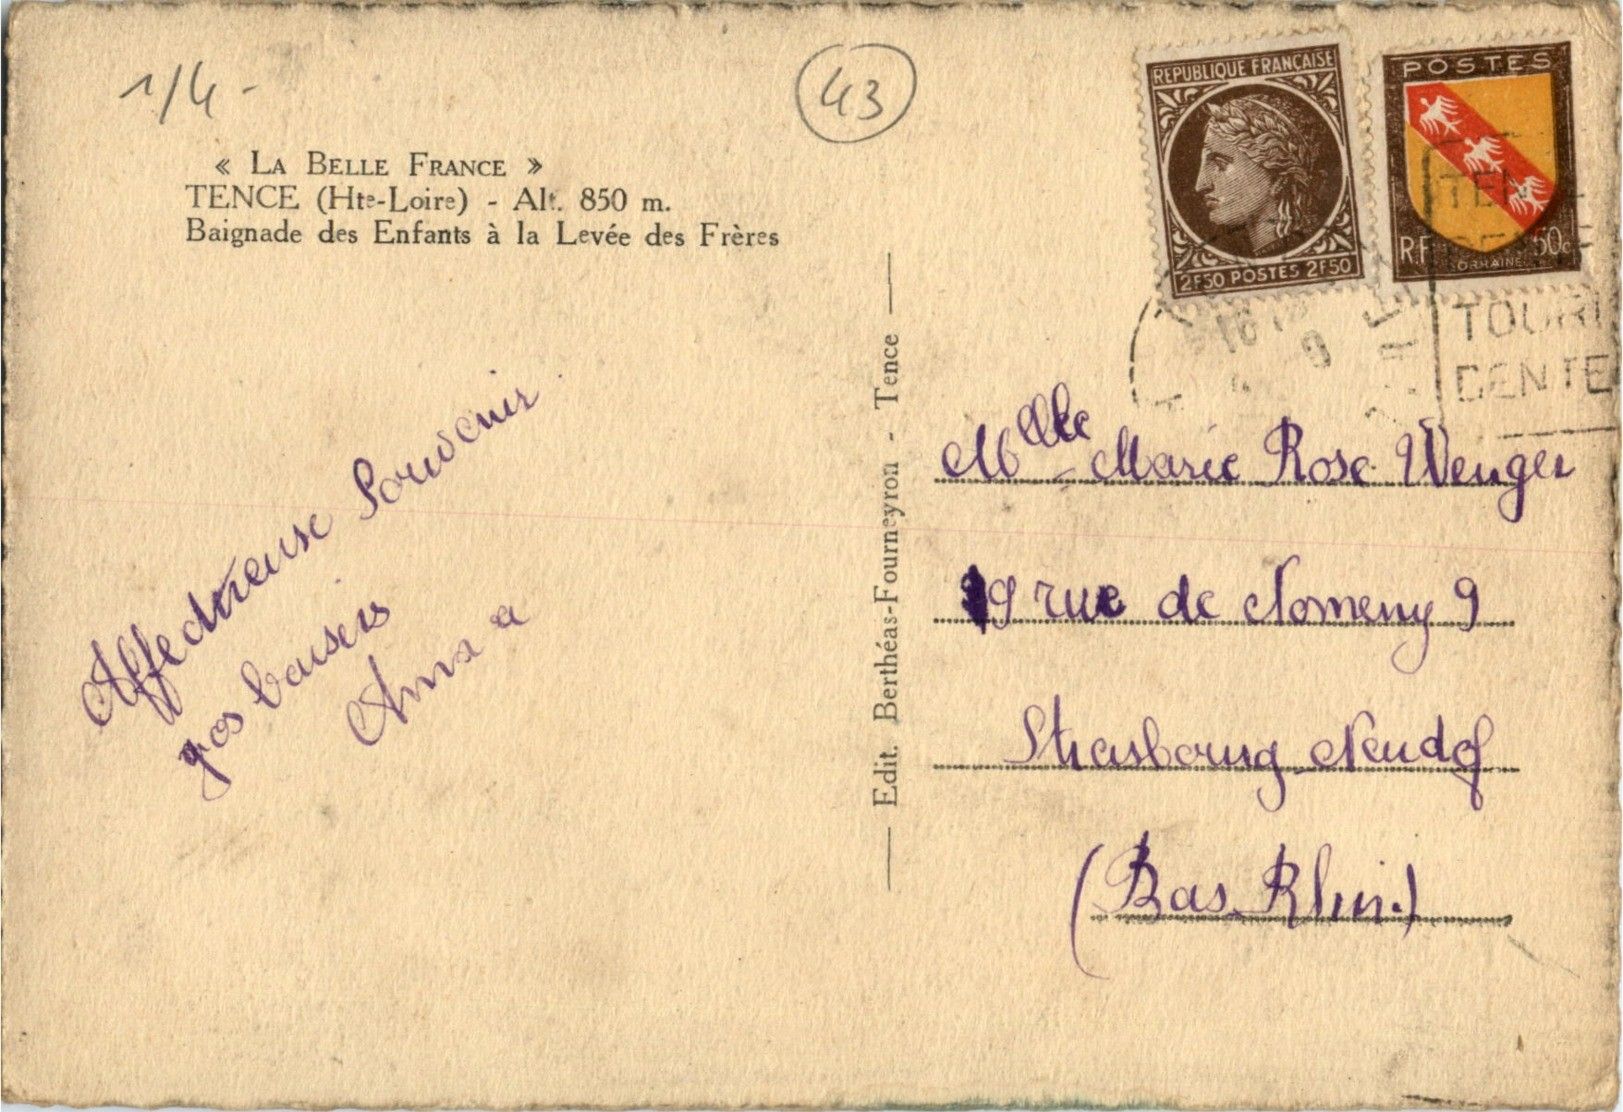 1/4 -
43
« LA BELLE FRANCE »
TENCE (Hte-Loire) - Alt. 850 m.
Baignade des Enfants à la Levée des Frères
REPUBLIQUE FRANÇAISE
2F50 POSTES 2F50
POSTES
R.F. 50c
LORRAINE
TEN
TOURI
CENTE
Affectueuse Souvenir
gros baisers
Anna
Edit. Berthéas-Fourneyron - Tence
Mlle Marie Rose Wenger
19 rue de Nomeny 9
Strasbourg Neudof
(Bas Rhin.)